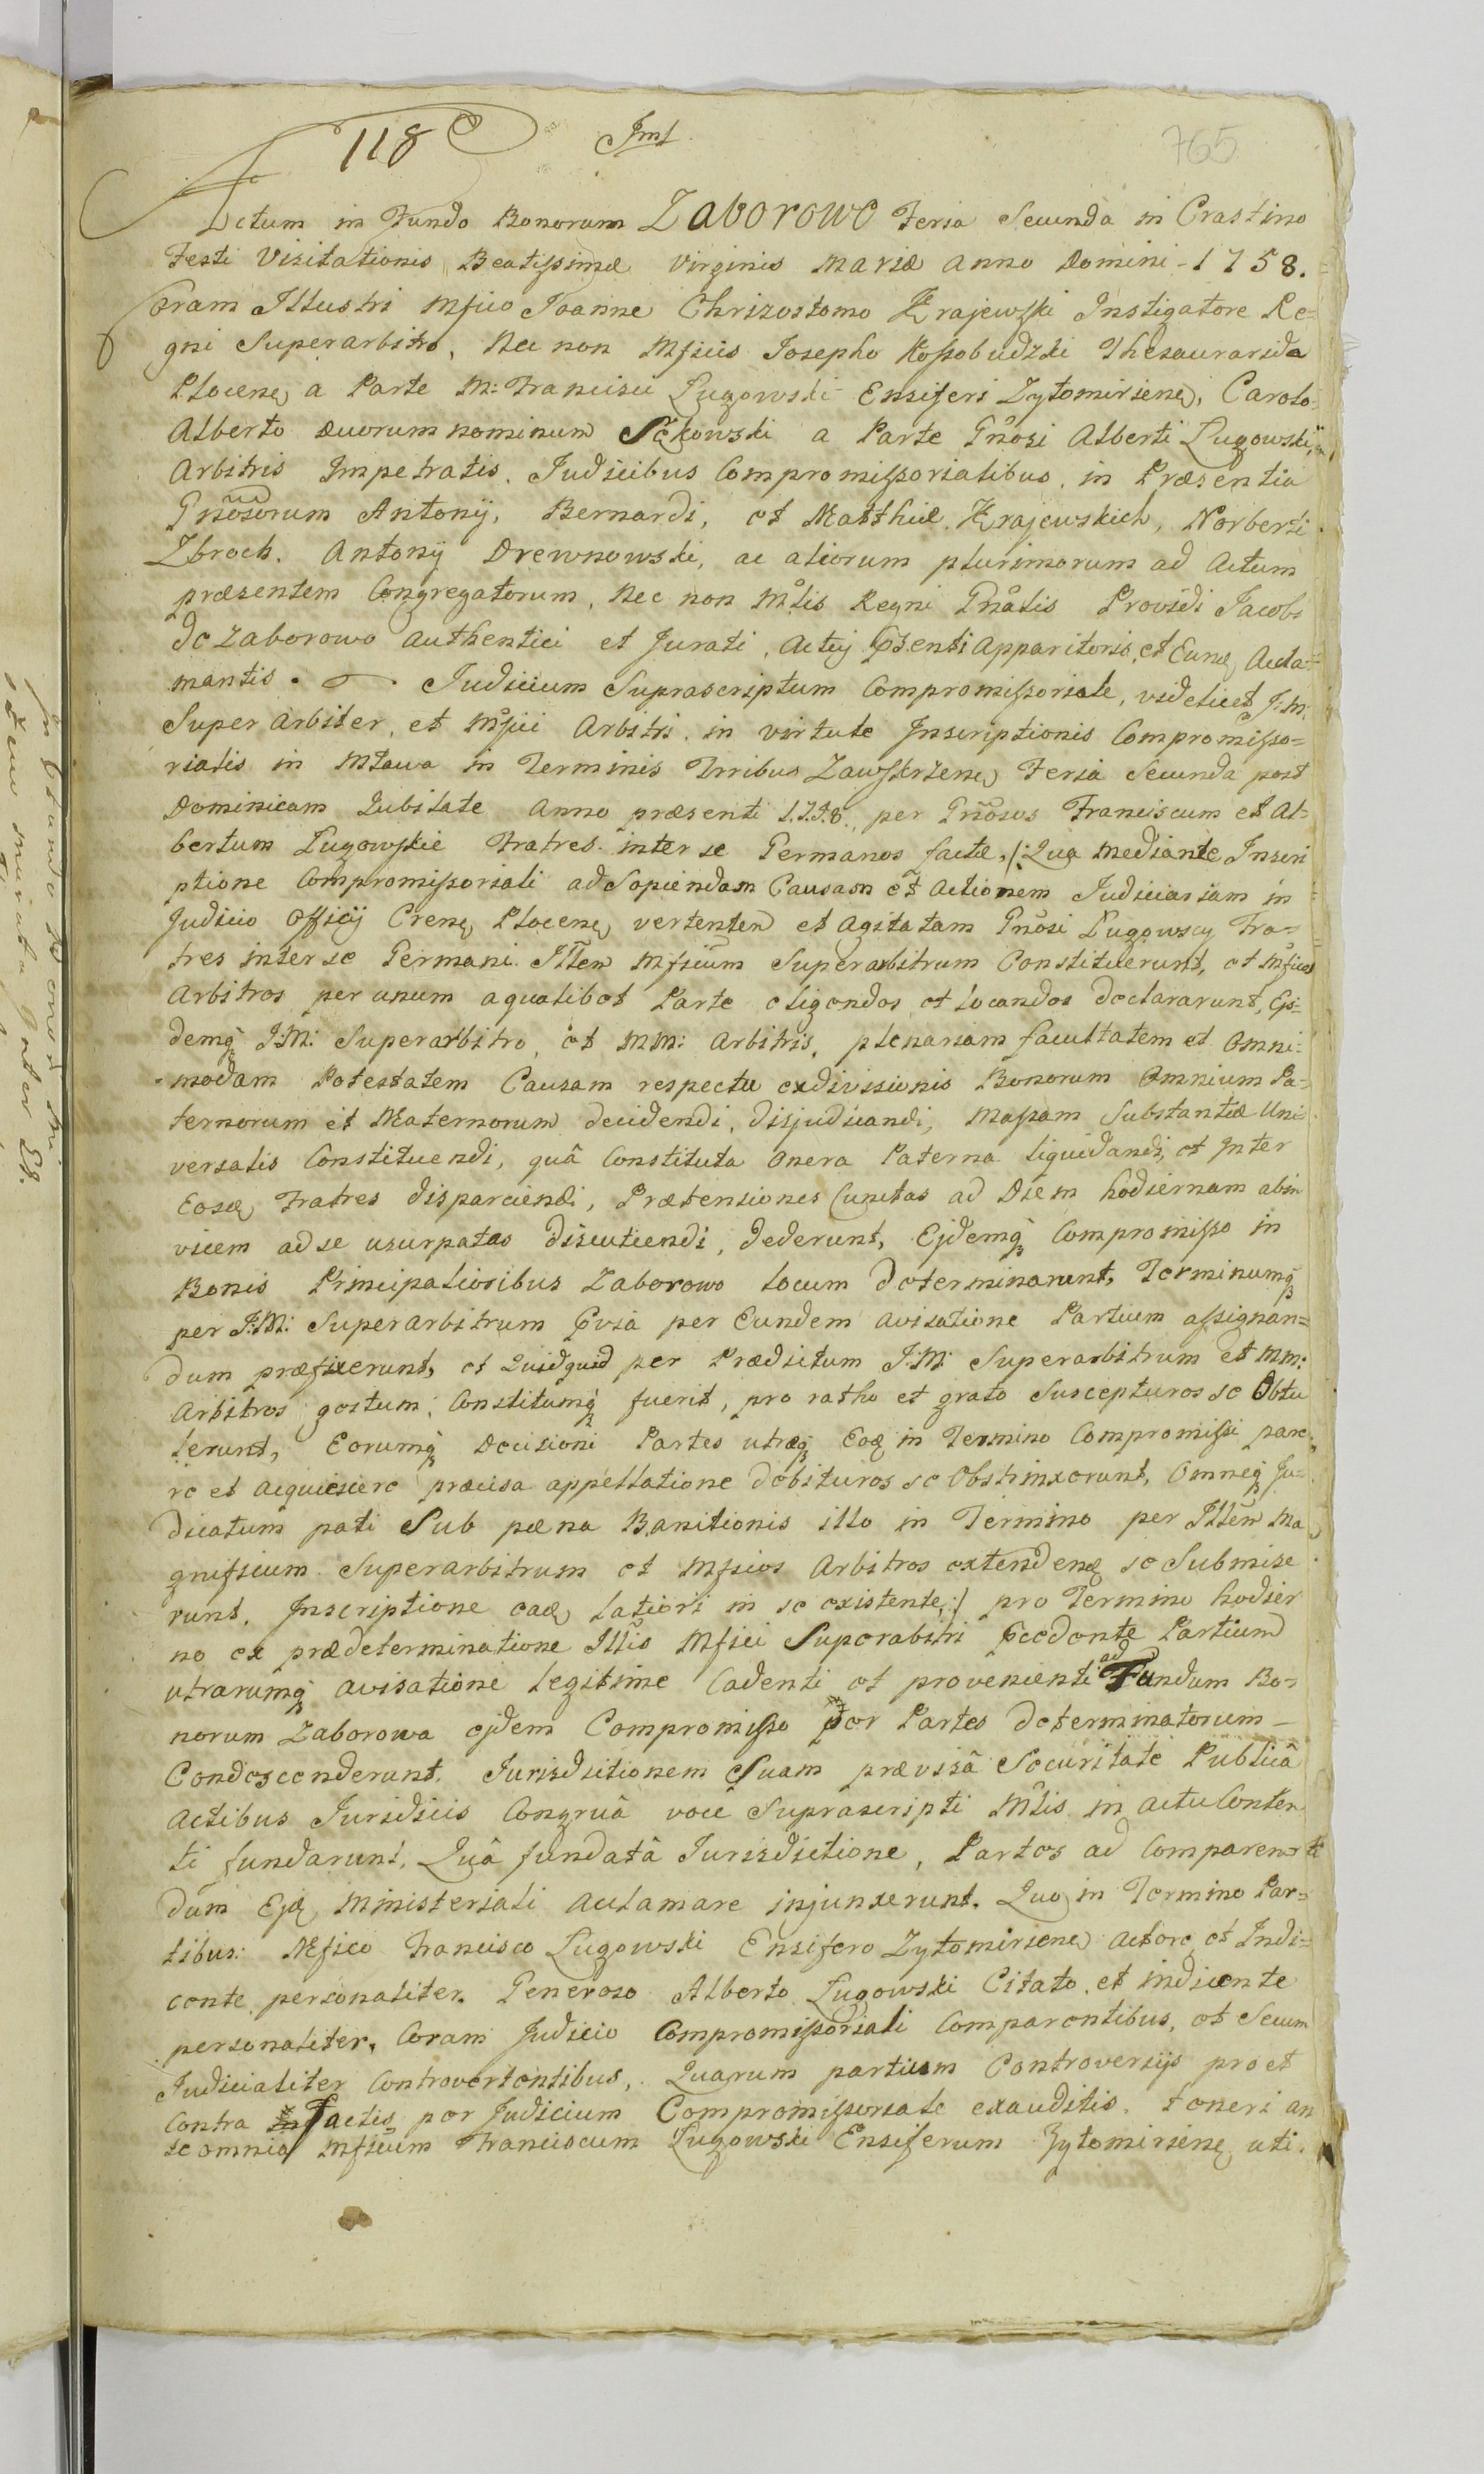 118
765
Actum in Fundo Bonorum Zaborowo Feria Secunda in Crastino
Festi Visitationis Beatissimæ Virginis Mariæ Anno Domini - 1758.
Coram Illustri Mfico Joanne Chrizostomo Krajewski Instigatore Re=
gni Superarbitro, Nec non Mficis Josepho Kossobudzki Thesaurarida
Plocenę a Parte M: Francisci Lugowski Ensiferi Zytomirienę, Carolo
Alberto duorum nominum a Parte Gnosi Alberti Lugowski,
Arbitris Impetratis, Judicibus Compromissorialibus, in Præsentia
Gnosorum Antonij, Bernardi, et Matthiæ Krajewskich, Norberti
Zbroch, Antonij Drewnowski, ac aliorum plurimorum ad Actum
præsentem Congregatorum, Nec non Mtlis Regni Gnalis Providi Jacobi
de Zaborowo authentici et Jurati, Actuj Apparitoris, et Acla=
mantis. Judicium Suprascriptum Compromissoriale, videlicet J:M:
Super arbiter, et Mfici Arbitri, in virtute Inscriptionis Compromisso=
rialis in Mlawa in Terminis Trribus Zawskrzenę Feria Secunda post
Dominicam Jubilate Anno præsenti 1758, per Gnosos Franciscum et Al=
bertum Lugowskie Fratres inter se Germanos factæ, /: Qua mediante Inscri
ptione Compromissoriali ad Sopiendam Causam et Actionem Judiciariam in
Judicio Officij Plocenę vertentem et agitatam Gnosi Lugowscy Fra=
tres inter se Germani Illem Mficum Superarbitrum Constituerunt, et Mficos
Arbitros per unum a qualibet Parte eligendos et locandos declararunt, Ejs=
demq J:M: Superarbitro, et MM: Arbitris, plenariam facultatem et Omni=
modam Potestatem Causam respectu exdivisionis Bonorum Omnium Pa=
ternorum et Maternorum decidendi, disjudicandi, Massam Substantiæ Uni=
versalis Constituendi, quâ Constituta Onera Paterna liquidandi, et Inter
Eosd Fratres disparciendi, Prætensiones Cunctas ad Diem hodiernam abin
vicem ad se usurpatas discutiendi, dederunt, Ejdemq Compromisso in
Bonis Principalioribus Zaborowo locum determinarunt, Terminumq
per J:M: Superarbitrum per Eundem avisatione Partium assignan=
dum præfixerunt, et Quidquid per Prædictum J:M: Superarbitrum et MM:
Arbitros gestum, Constitumq fuerit, pro ratho et grato Suscepturos se Obtu
lerunt, Eorumq Decisioni Partes utræq in Termino Compromissi pare=
re et acquiescere præcisa appellatione debituros se Obstrinxerunt, Omneq Ju=
dicatum pati Sub pæna Banitionis illo in Termino per Illem Ma
gnificum Superarbitrum et Mficos Arbitros extendenę se Submise
runt, Inscriptione eadę latiori in se existente,:/ pro Termino hodier
no ex prædeterminatione Illis Mfici Superabitri Partium
utrarumq avisatione legitime Cadenti et provenienti ad Fundum Bo=
norum Zaborowa ejdem Compromisso per Partes determinatorum -
Condescenderunt. Jurisdictionem Suam prævisâ Securitate Publicâ
Actibus Juridicis Congruâ voce Suprascripti Mtlis in actu Conten
ti fundarunt, Quâ fundatâ Jurisdictione, Partes ad Comparen
dum Ejd Ministeriali aclamare injunxerunt. Quo in Termino Par=
tibus: Mfico Francisco Lugowski Ensifero Zytomirienę Actore et Indi=
cente personaliter. Generoso Alberto Lugowski Citato et indicente
personaliter, Coram Judicio Compromissoriali Comparentibus, et Secum
Judicialiter Controvertentibus, Quarum partium Controversijs pro et
Contra factis per Judicium Compromissoriale exauditis, teneri an
te omnia Mficum Franciscum Lugowski Ensiferum Zytomirienę uti